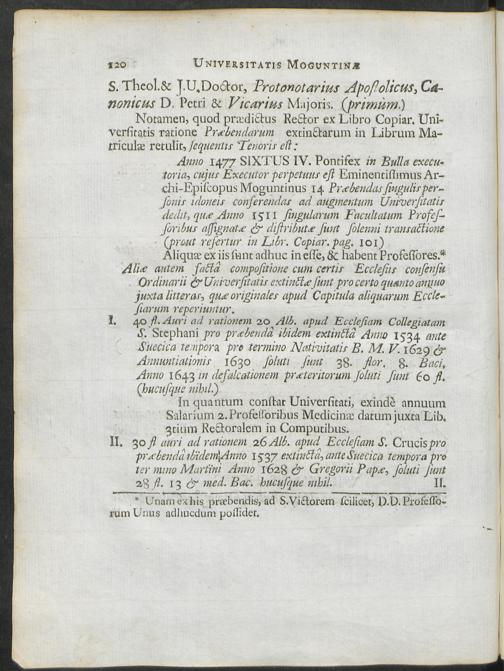 120 UNIVERSITATIS MOGUNTINÆ
S. Theol. & J.U. Doctor, Protonotarius Apostolicus, Ca-
nonicus D. Petri & Vicarius Majoris. (primùm.)
Notamen, quod prædictus Rector ex Libro Copiar. Uni-
versitatis ratione Præbendarum extinctarum in Librum Ma-
triculæ retulit, sequentis Tenoris est:
Anno 1477 SIXTUS IV. Pontifex in Bulla execu-
toria, cujus Executor perpetuus est Eminentissimus Ar-
chi-Episcopus Moguntinus 14 Præbendas singulis per-
sonis idoneis conferendas ad augmentum Universitatis
dedit, quæ Anno 1511 singularum Facultatum Profes-
soribus assignatæ & distributæ sunt solenni transactione
(prout refertur in Libr. Copiar. pag. 101)
Aliquæ ex iis sunt adhuc in esse, & habent Professores.*
Aliæ autem factâ compositione cum certis Ecclesiis consensu
Ordinarii & Universitatis extinctæ sunt pro certo quanto annuo
juxta litteras, quæ originales apud Capitula aliquarum Eccle-
siarum reperiuntur.
I. 40 fl. Auri ad rationem 20 Alb. apud Ecclesiam Collegiatam
S. Stephani pro præbendâ ibidem extinctâ Anno 1534 ante
Suecica tempora pro termino Nativitatis B. M. V. 1629 &
Annuntiationis 1630 soluti sunt 38. flor. 8. Baci,
Anno 1643 in defalcationem præteritorum soluti sunt 60 fl.
(hucusque nihil.)
In quantum constat Universitati, exindè annuum
Salarium 2. Professoribus Medicinæ datum juxta Lib.
3tium Rectoralem in Computibus.
II. 30 fl auri ad rationem 26 Alb. apud Ecclesiam S. Crucis pro
præbendâ ibidem Anno 1537 extinctâ, ante Suecica tempora pro
termino Martini Anno 1628 & Gregorii Papæ, soluti sunt
28 fl. 13 & med. Bac. hucusque nihil. II.
* Unam ex his præbendis, ad S. Victorem scilicet, D.D. Professo-
rum Unus adhucdum possidet.